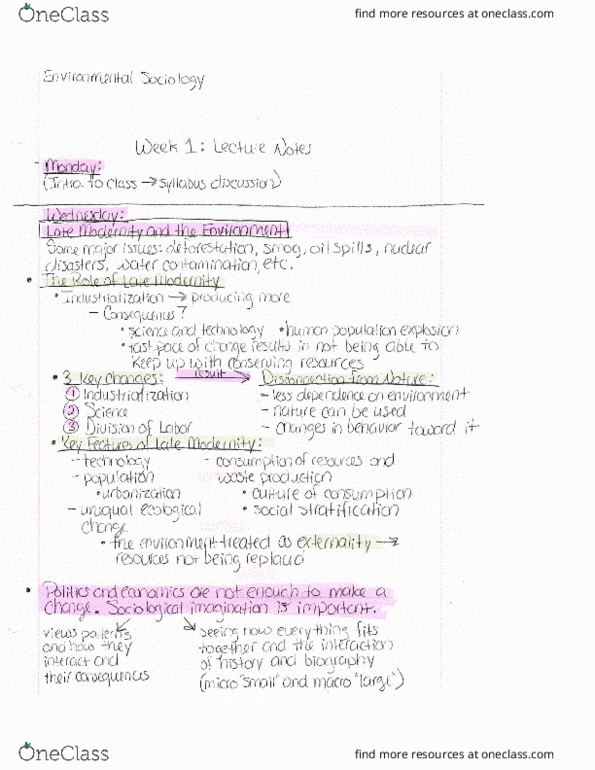 OneClass
find more resources at oneclass.com
Environmental Sociology
Week 1: Lecture Notes
- Monday:
(Intro. to class → syllabus discussion)
Wednesday:
Late Modernity and the Environment
Some major issues: deforestation, smog, oil spills, nuclear
disasters, water contamination, etc.
• The Role of Late Modernity
• Industrialization → producing more
- Consequences?
• science and technology • human population explosion
• fast pace of change results in not being able to
keep up with conserving resources
• 3 Key Changes: result → Disconnection from Nature:
① Industrialization - less dependence on environment
② Science - nature can be used
③ Division of Labor - changes in behavior toward it
• Key Features of Late Modernity:
- technology - consumption of resources and
- population waste production
• urbanization • culture of consumption
- unequal ecological • social stratification
change
• the environment treated as externality →
resources not being replaced
• Politics and economics are not enough to make a
change. Sociological imagination is important.
views patterns seeing how everything fits
and how they together and the interaction
interact and of history and biography
their consequences (micro "small" and macro "large")
OneClass
find more resources at oneclass.com